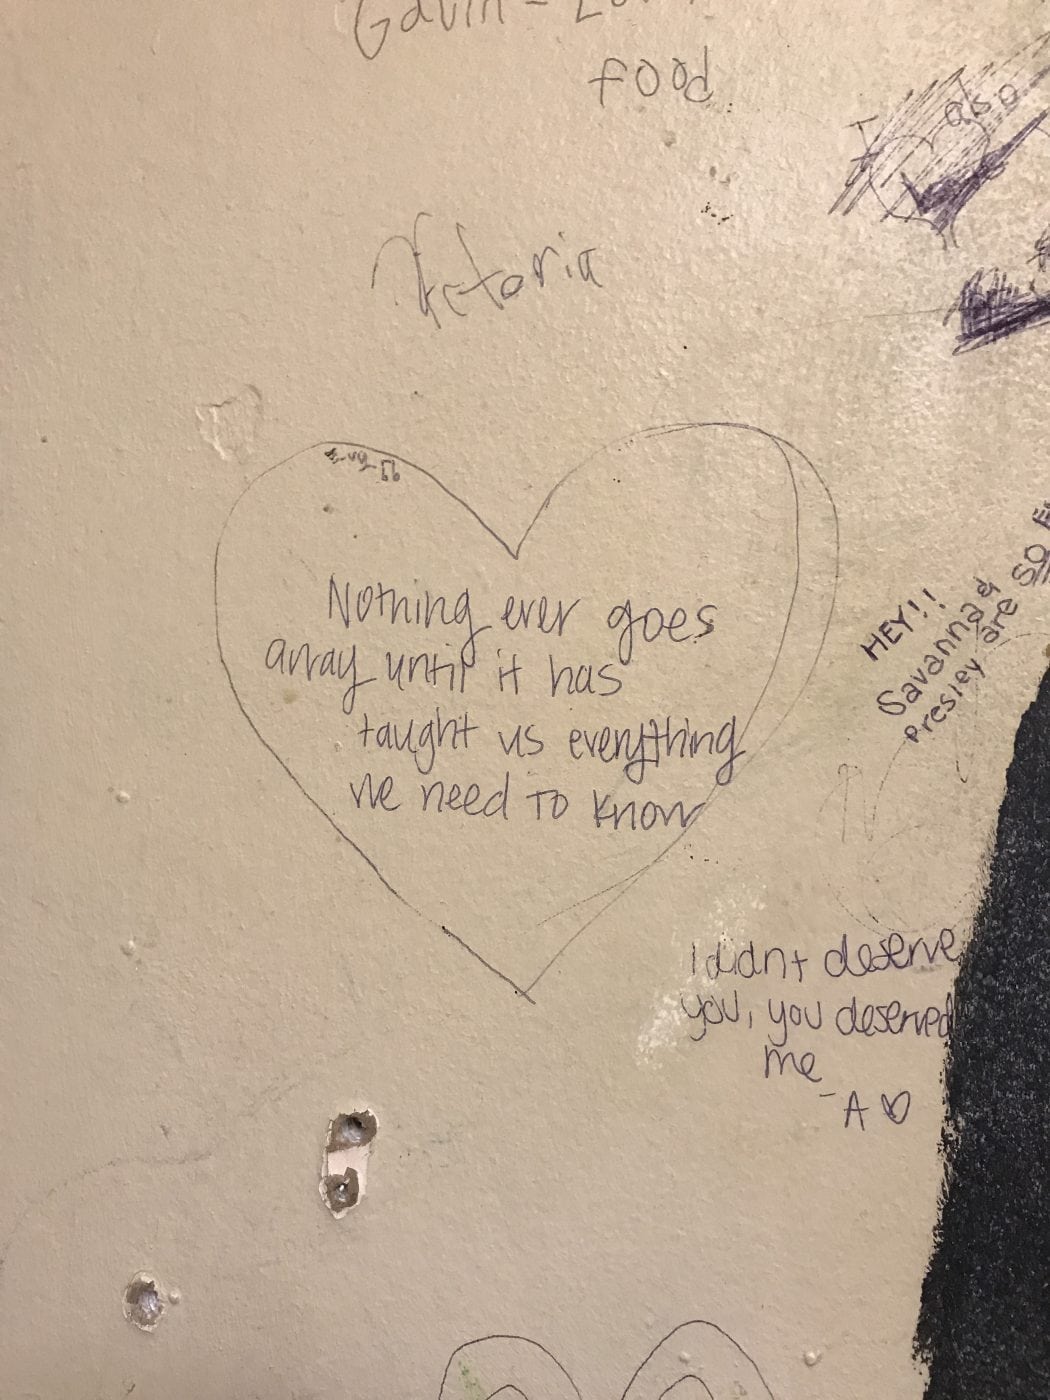 Gavin -
food
Victoria
Nothing ever goes
array until it has
taught us everything
we need to know
HEY!!
Savanna &
Presley are SO
I didnt deserve
you, you deserved
me
- A ♡